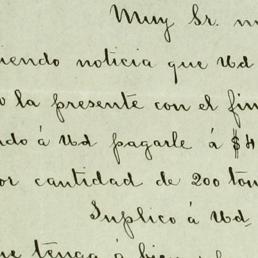 Muy Sr. m
iendo noticia que Ud
o la presente con el fin
ndo á Ud pagarle á $4
or cantidad de 200 ton
Suplico á Ud.
ue tenga á bien